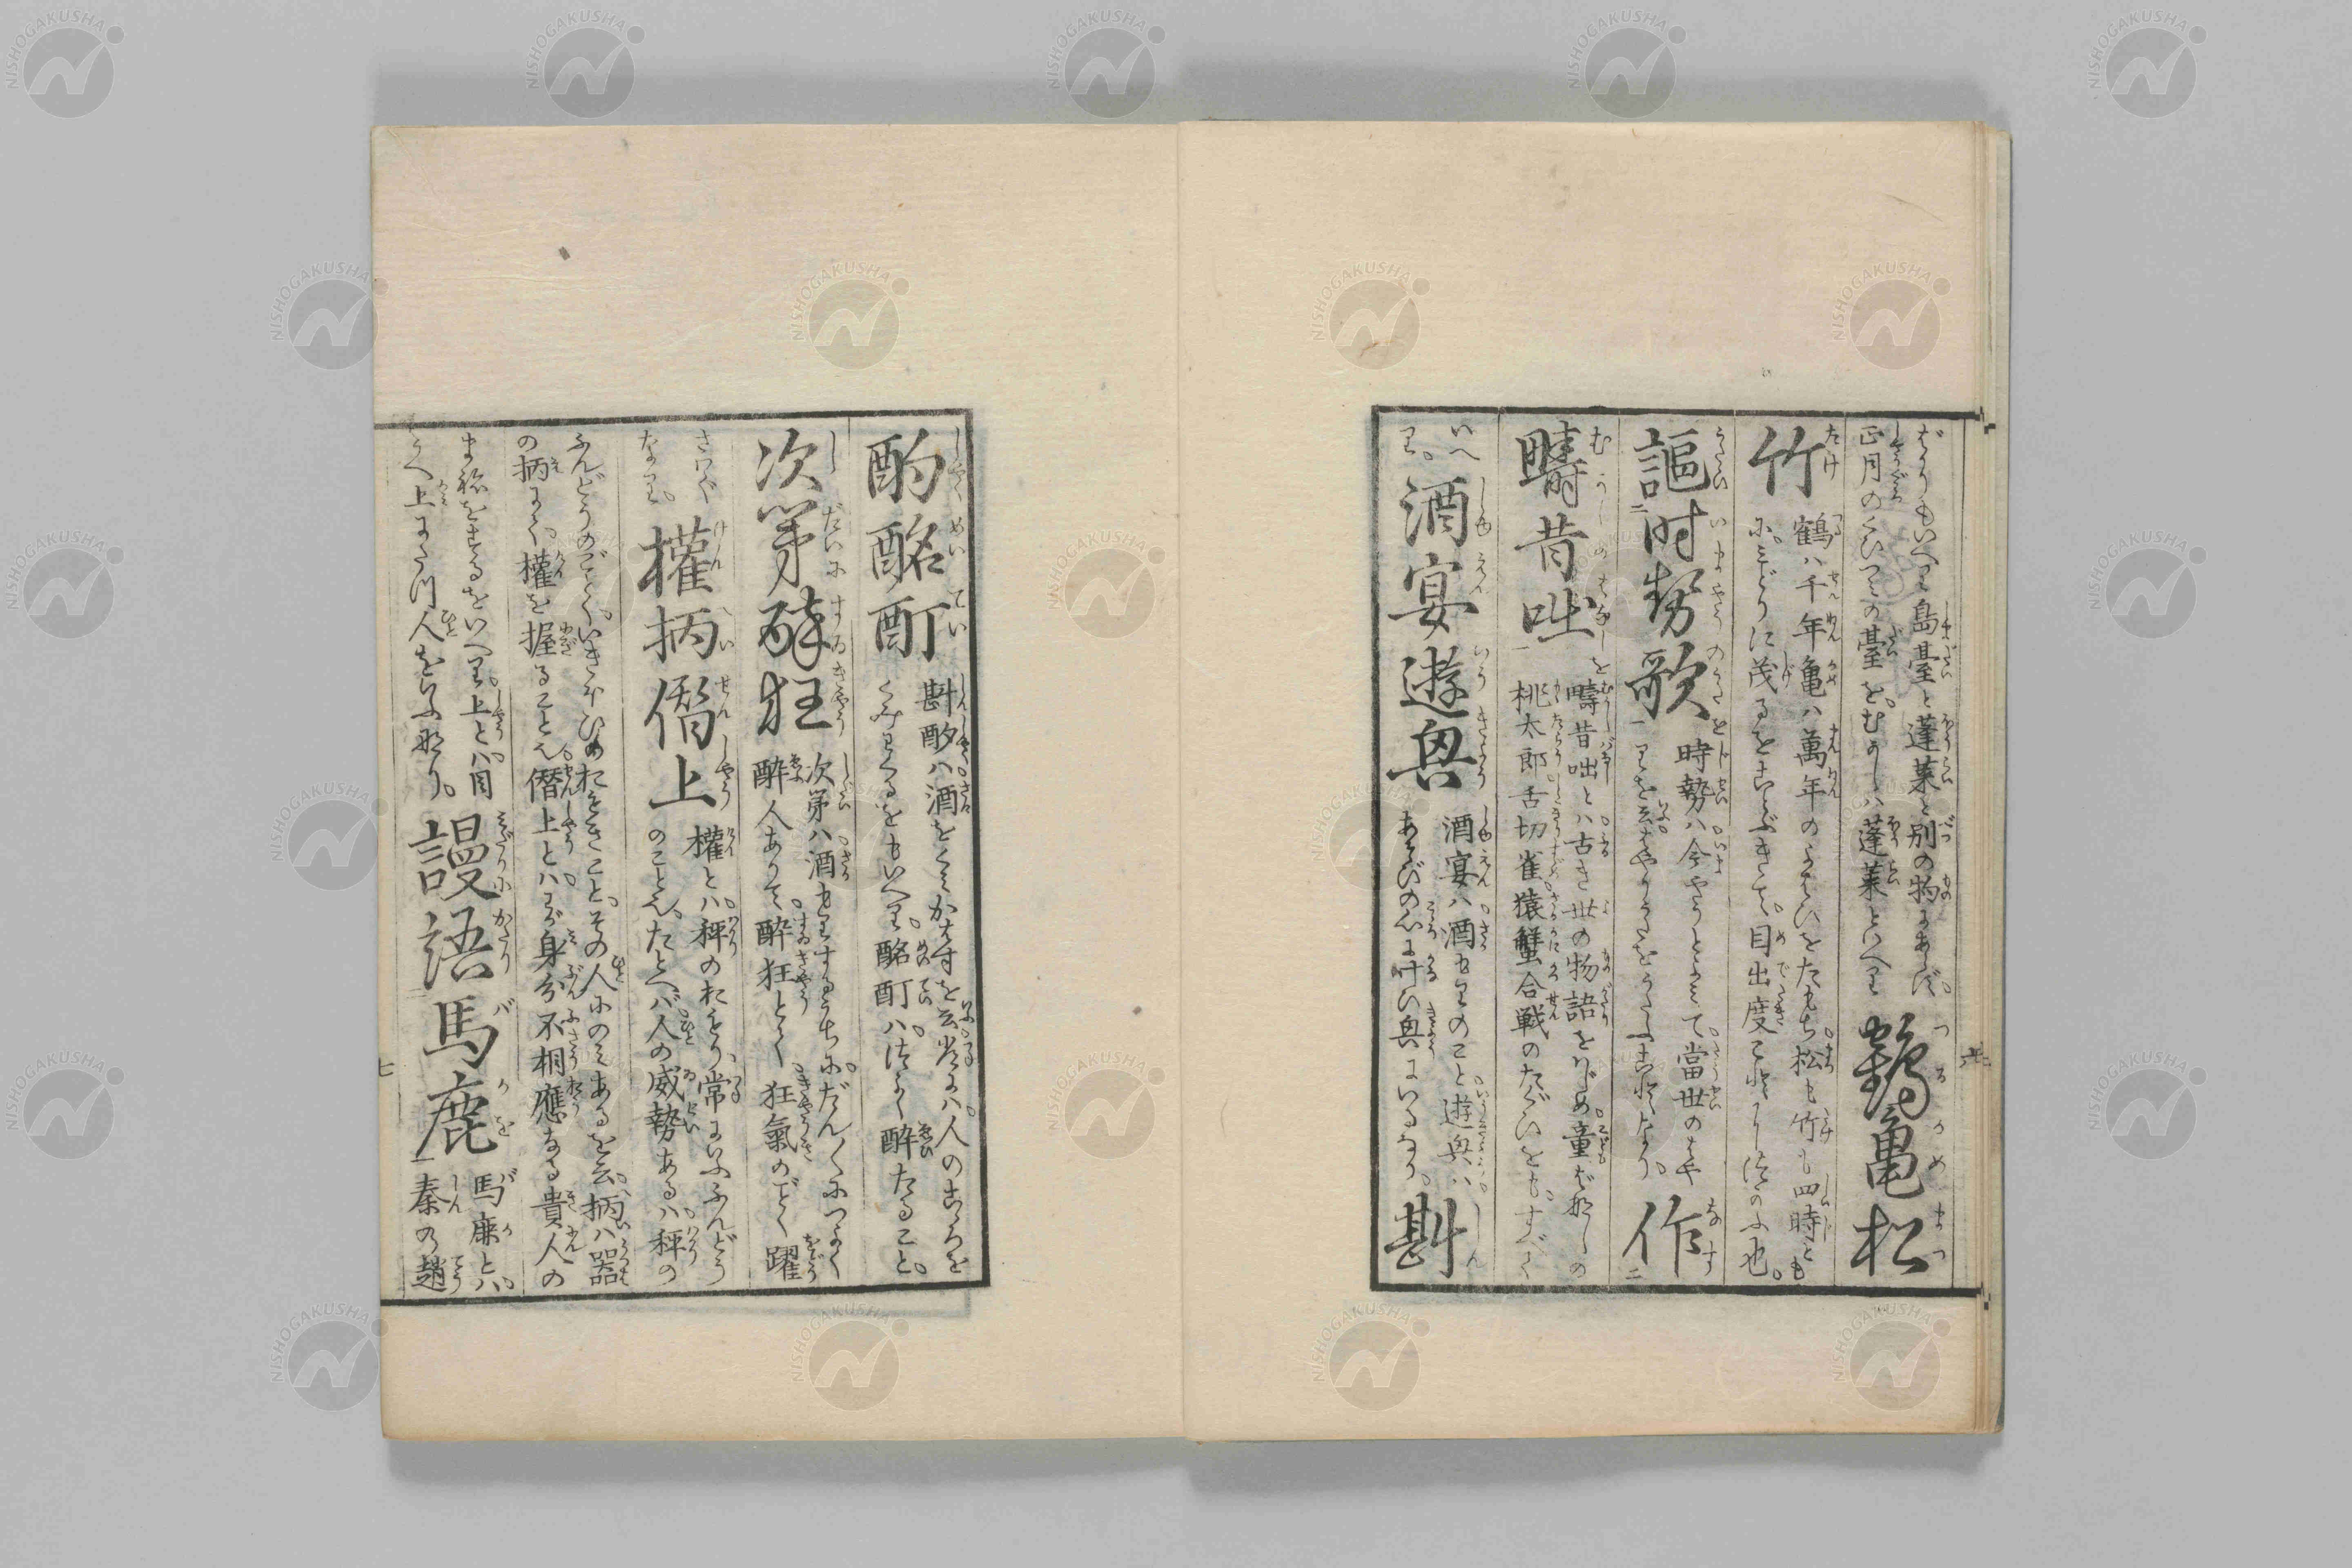 ばかりもいへり島臺と蓬莱と別の物にあらず。
正月のくひつみの臺を。むかしハ蓬莱といへり
鶴亀松
竹
鶴ハ千年亀ハ萬年のよはひをたもち。松も竹も四時とも
に。みどりに茂るをことぶきて。目出度
謳時勢歌
時勢ハ今やうとよみて。當世のはや
りを云。はやりうたをうたふことなり。
作
疇昔咄
疇昔咄とハ。古き世の物語をはじめ。童ばなしの
桃太郎舌切雀猿蟹合戦のたぐひをも。すべて
いへ
り。
酒宴遊興
酒宴ハ。酒もりのこと遊興ハ。
あそびの心に叶ひ興にいるなり。
斟
酌酩酊
斟酌ハ。酒をくみかはすを云。常にハ。人のこゝろを
くみわくるをもいへり。酩酊ハ。つよく酔たること。
次第酔狂
次第ハ。酒もりするうちに。だん〱につよく
酔人ありて。酔狂とて、狂氣のごとく躍
さわぐ
なり。
權柄僭上
權とハ。秤のおもり、常にいふふんどう
のこと也。たとへバ人の威勢あるハ。秤の
ふんどうのごとく。いきほひのおもきこと。その人にのみあるを云。柄ハ器
の柄にて。權を握ること也。僭上とハ。わが身分不相應なる貴人の
ま称をするをいへり。上とハ。目
うへ上にたつ人をいふなり。
謾語馬鹿
馬鹿とハ。
秦の趙
七